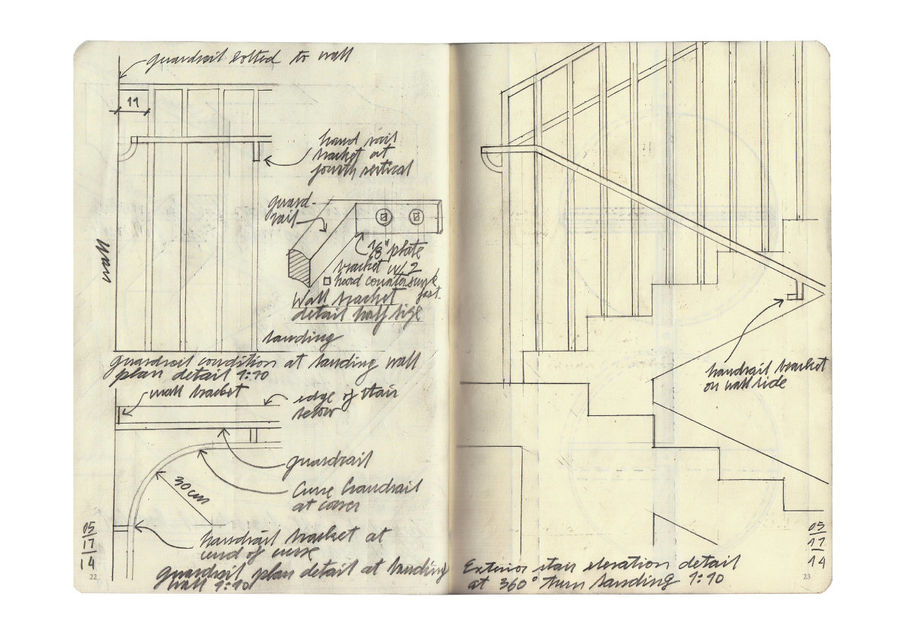 guardrail bolted to wall
11
hand rail
bracket at
fourth vertical
guard-
rail
wall
1/8" plate
bracket w/2
head countersunk
Wall bracket
detail half size
landing
guardrail condition at landing wall
plan detail 1:10
wall bracket
edge of stair
below
guardrail
Curve handrail
at corner
30cm
handrail bracket at
end of curve
guardrail plan detail at landing
wall 1:10
05
17
14
22
handrail bracket
on wall side
Exterior stair elevation detail
at 360° turn landing 1:10
05
17
14
23